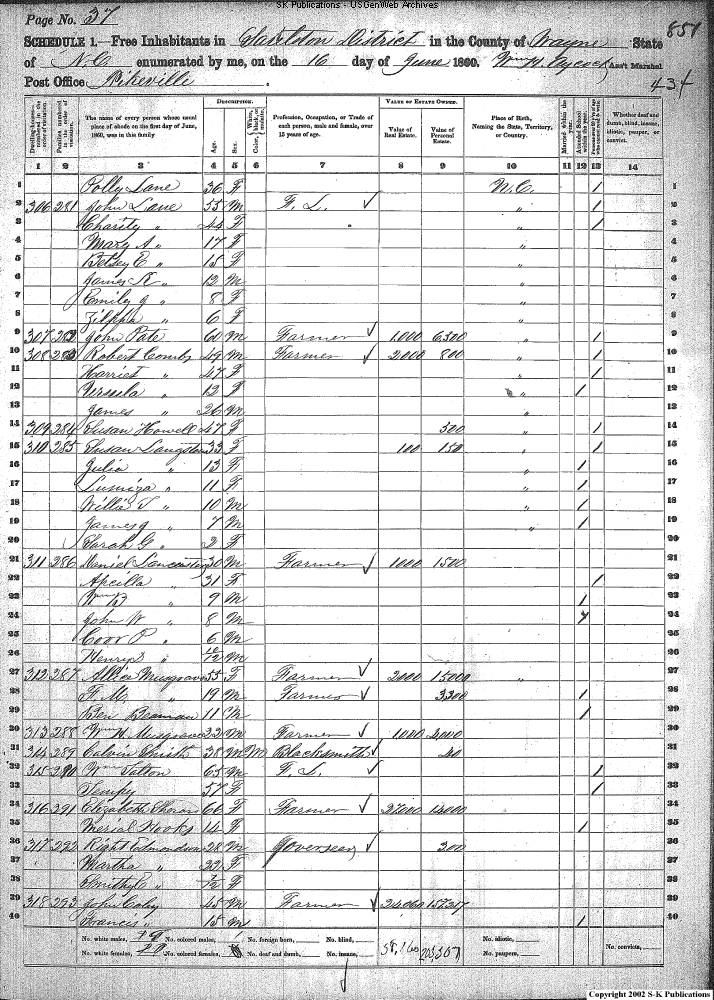 SK Publications - USGenWeb Archives
Page No. 37
851
SCHEDULE 1.—Free Inhabitants in District in the County of Wayne State
of N.C. enumerated by me, on the 16 day of June 1860. Wm H. Aycock Ass't Marshal
Post Office Pikeville
434
Dwelling-houses—numbered in the order of visitation.
The name of every person whose usual place of abode on the first day of June, 1860, was in this family.
DESCRIPTION.
Age.
Sex.
Profession, Occupation, or Trade of each person, male and female, over 15 years of age.
VALUE OF ESTATE OWNED.
Value of Real Estate.
Value of Personal Estate.
Place of Birth, Naming the State, Territory, or Country.
Married within the year.
Attended School within the year.
Whether deaf and dumb, blind, insane, idiotic, pauper, or convict.
1 2 3 4 5 6 7 8 9 10 11 12 13 14
1 Polly Lane 36 F N.C. / 1
2 306 281 John Lane 55 M F. L. " / 2
3 Charity " 44 F " / 3
4 Mary A " 17 F " 4
5 Betsey E " 15 F " 5
6 James R " 12 M " 6
7 Emily J " 8 F " 7
8 Zilpha " 6 F " 8
9 307 282 John Pate 60 M Farmer 1,000 6300 " / 9
10 308 283 Robert Comby 49 M Farmer 2,000 800 " / 10
11 Harriet " 47 F " / 11
12 Ursula " 12 F " / 12
13 James " 26 M " 13
14 309 284 Susan Howell 47 F 500 " / 14
15 310 285 Susan Langston 33 F 100 150 " / 15
16 Julia " 13 F " / 16
17 " 11 F " / 17
18 Willie T " 10 M " / 18
19 James J " 7 M " / 19
20 Sarah G " 2 F 20
21 311 286 Daniel Lancaster 30 M Farmer 1000 1500 21
22 Apcilla " 31 F / 22
23 Wm B " 9 M / 23
24 John W " 8 M 24
25 Coor P " 6 M 25
26 Henry " M 26
27 312 287 Allice Musgrave 55 F Farmer 2000 15000 " 27
28 F. M. " 19 M Farmer 3300 / 28
29 Ben Beaman 11 M / 29
30 313 288 Wm H Musgrave 22 M Farmer 1000 30
31 314 289 Calvin Smith 38 M M Blacksmith 40 31
32 315 290 Wm 65 M F. L. / 32
33 Tempy 57 F / 33
34 316 291 Elizabeth 66 F Farmer 34
35 Hooks 14 F / 35
36 317 292 Right Edmondson 28 M Overseer 300 36
37 Martha " 22 F 37
38 Smithy E " F 38
39 318 293 John Coley 45 M Farmer 39
40 Francis " 15 M / 40
No. white males, 19 No. colored males, 1 No. foreign born, No. blind, No. idiotic,
No. white females, No. colored females, No. deaf and dumb, No. insane, No. paupers, No. convicts,
Copyright 2002 S-K Publications